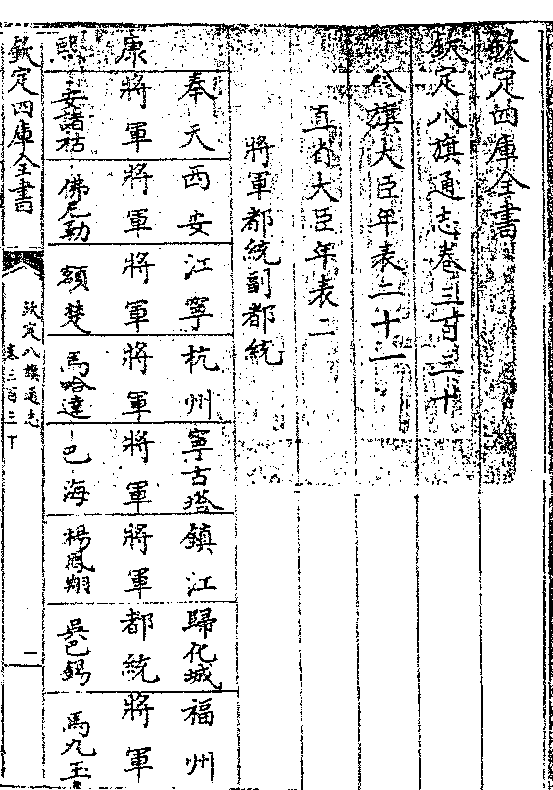 欽定四庫全書
欽定八旗通志卷三百三十
八旗大臣年表二十一
直省大臣年表二
將軍都統副都統
奉天將軍
西安將軍
江寧將軍
杭州將軍
寧古塔將軍
鎮江將軍
歸化城都統
福州將軍
康熙
安諸祜
佛尼勒
額楚
馬哈達
巴海
楊鳳翔
吳巴錫
馬九玉
欽定四庫全書
欽定八旗通志
一